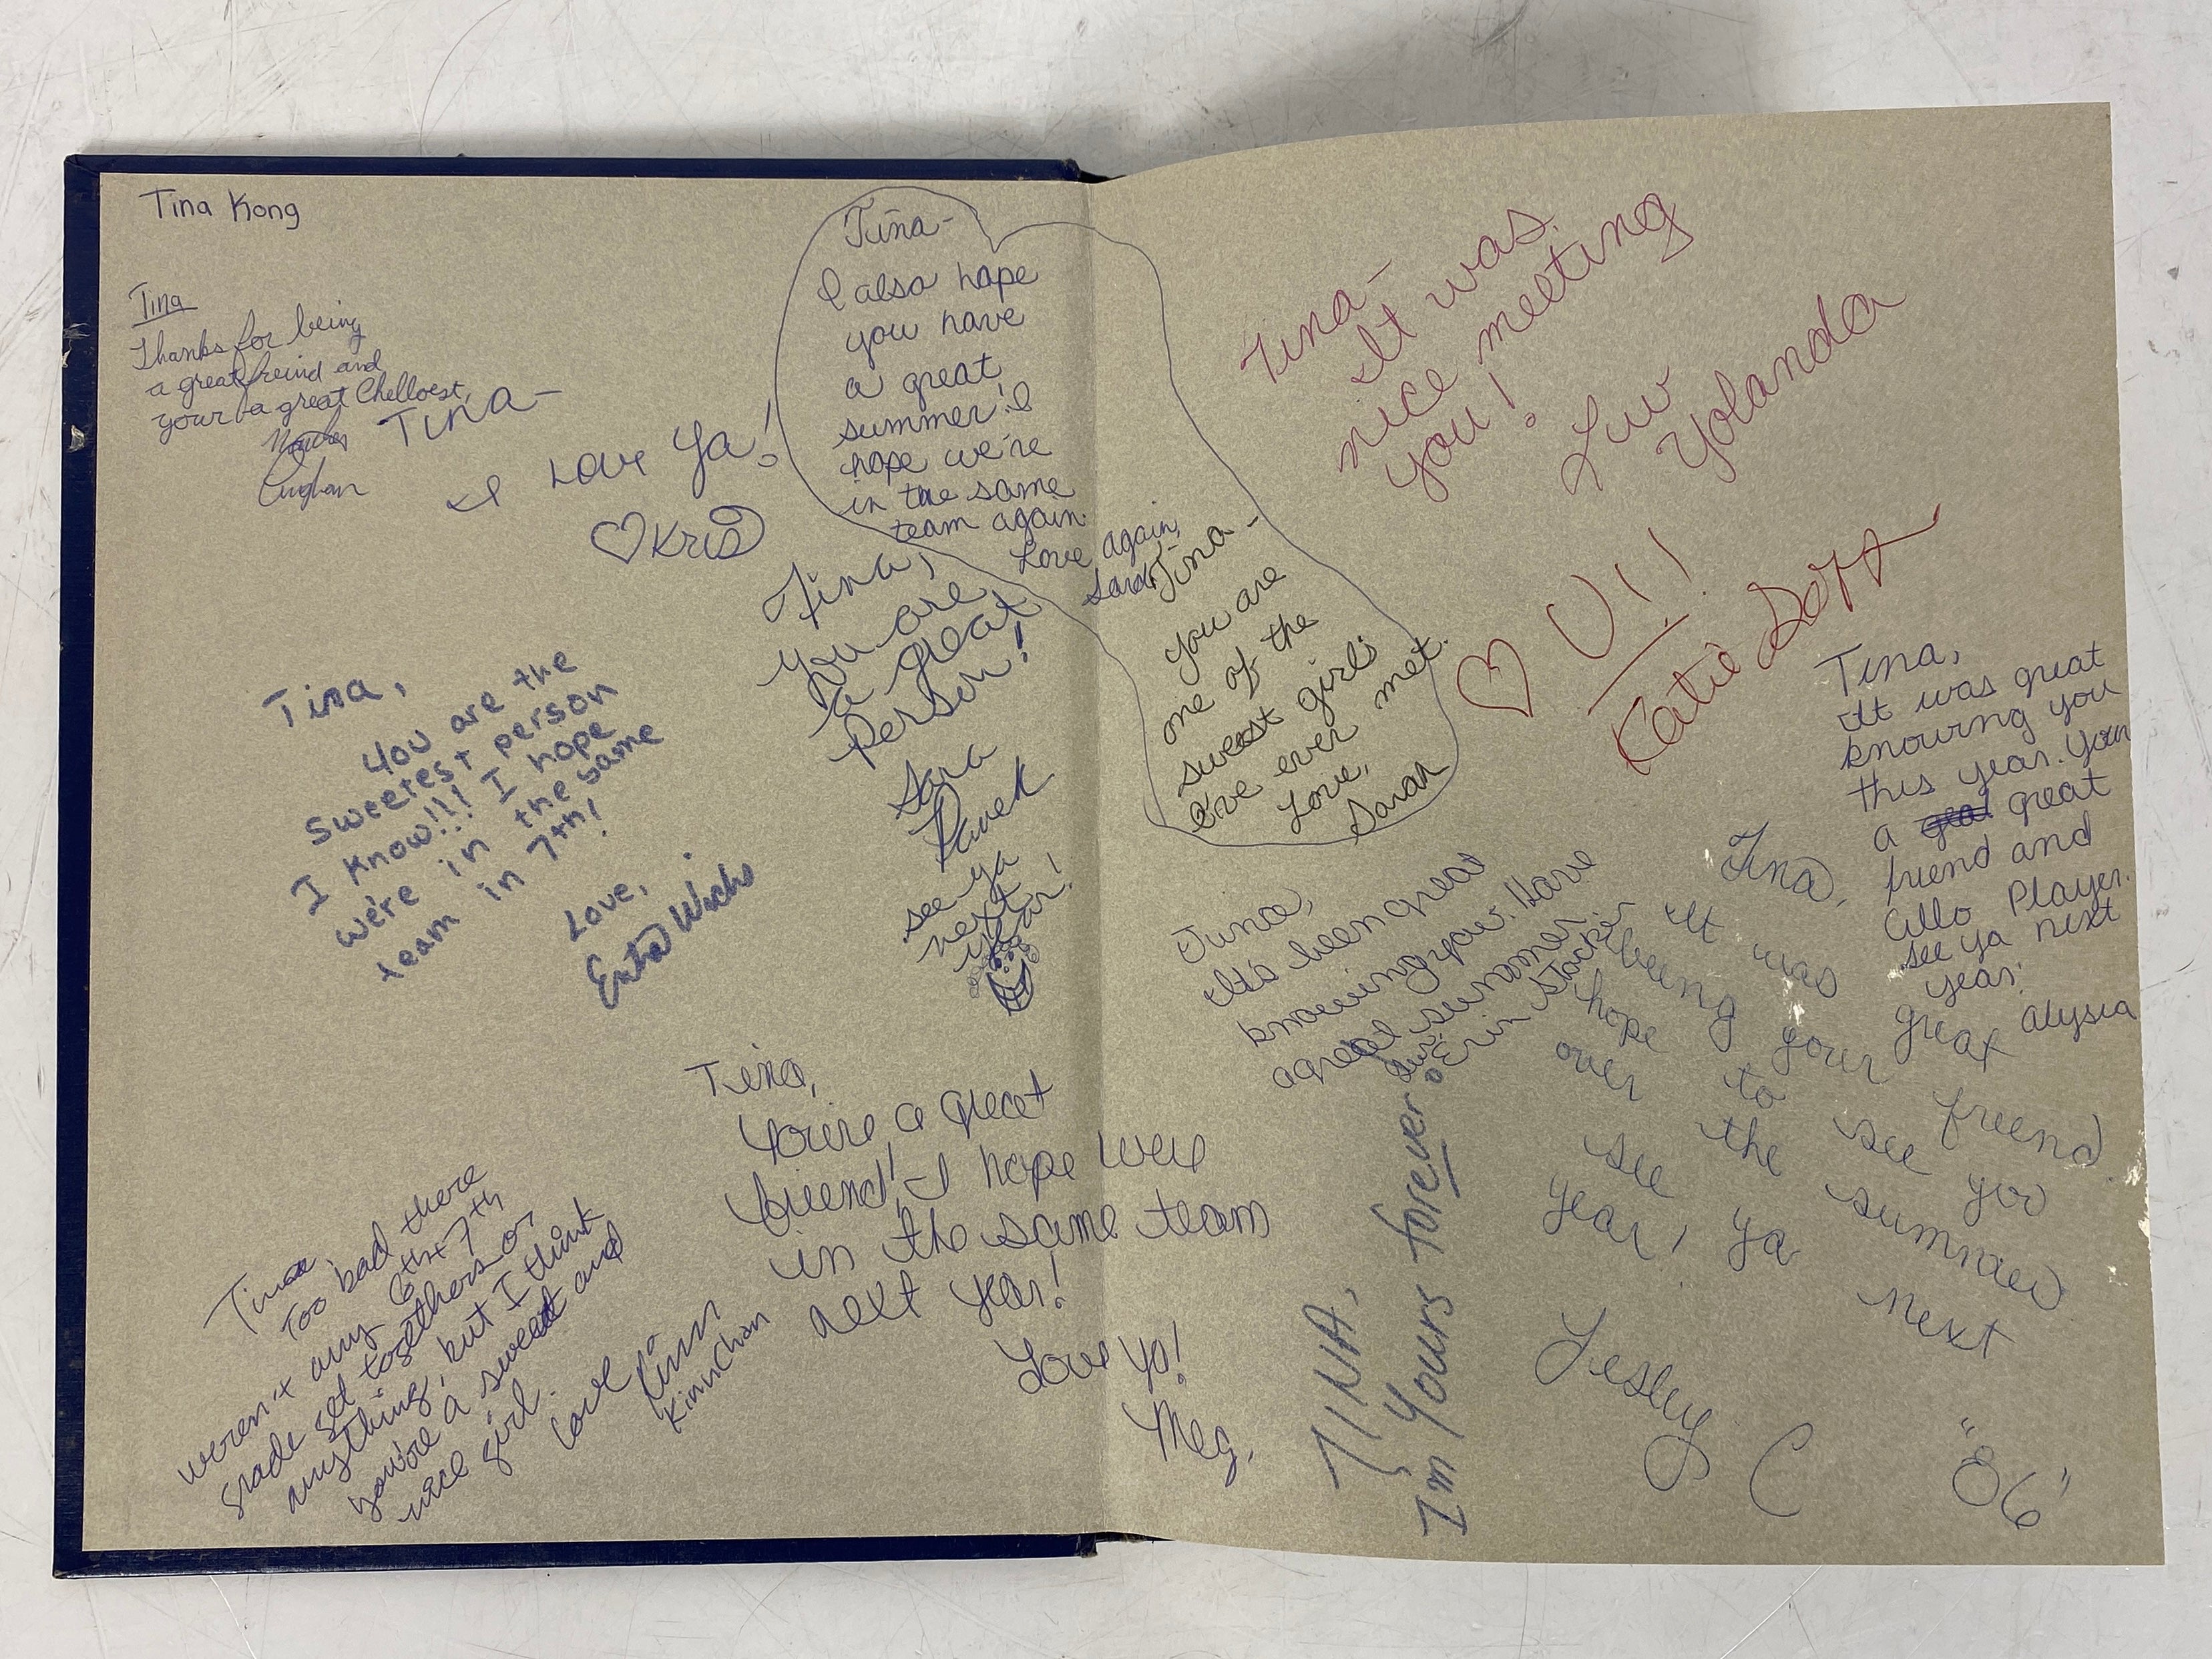 Tina Kong
Tina
Thanks for being
a great freind and
your a great Chelloest
Tina-
I Love Ya!
♡Kris
Tina-
I also hope
you have
a great
summer! I
hope we're
in the same
team again.
Love again,
Sarah
Tina-
you are
one of the
sweetest girls
I've ever met.
Love,
Sarah
Tina,
You are
a great
person!
Sara
see ya
next
year!
Tina,
You are the
sweetest person
I know!!! I hope
we're in the same
team in 7th!
Love,
Tina,
You're a great
friend! I hope we're
in the same team
next year!
Love Ya!
Meg.
Tina,
Too bad there
weren't any 6th + 7th
grade get togethers or
anything, but I think
you're a sweet and
nice girl.
Love
Kinn
Kinn Chan
Tina-
It was
nice meeting
you!
Luv
Yolanda
♡ U!!
Katie
Tina,
It was great
knowing you
this year. Your
a great
friend and
Cello Player.
See ya next
year!
Alysia
Tina,
It's been great
knowing you. Have
a great summer
Luv,
Erin
Tina,
It was great
being your friend.
hope to see you
over the summer
see ya next
year!
Lesley C "86"
TINA,
I'm Yours forever